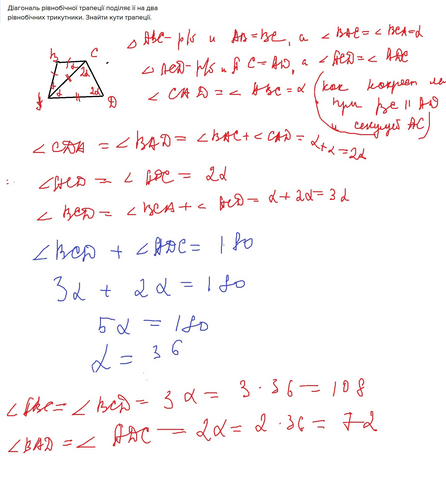 Діагональ рівнобічної трапеції поділяє її на два
рівнобічних трикутники. Знайти кути трапеції.
△ ABC - р/б и AB = BC, а ∠ BAC = ∠ BCA = α
△ ACD - р/б и A C = AD, а ∠ ACD = ∠ ADC
∠ CAD = ∠ ABC = α
( как накрест ле
при BC || AD
и секущей AC )
C
D
α
2α
2α
∠ CDA = ∠ BAD = ∠ BAC + ∠ CAD = α + α = 2α
∠ ACD = ∠ ADC = 2α
∠ BCD = ∠ BCA + ∠ ACD = α + 2α = 3α
∠ BCD + ∠ ADC = 180
3α + 2α = 180
5α = 180
α = 36
∠ ABC = ∠ BCD = 3α = 3 · 36 = 108
∠ BAD = ∠ ADC = 2α = 2 · 36 = 72